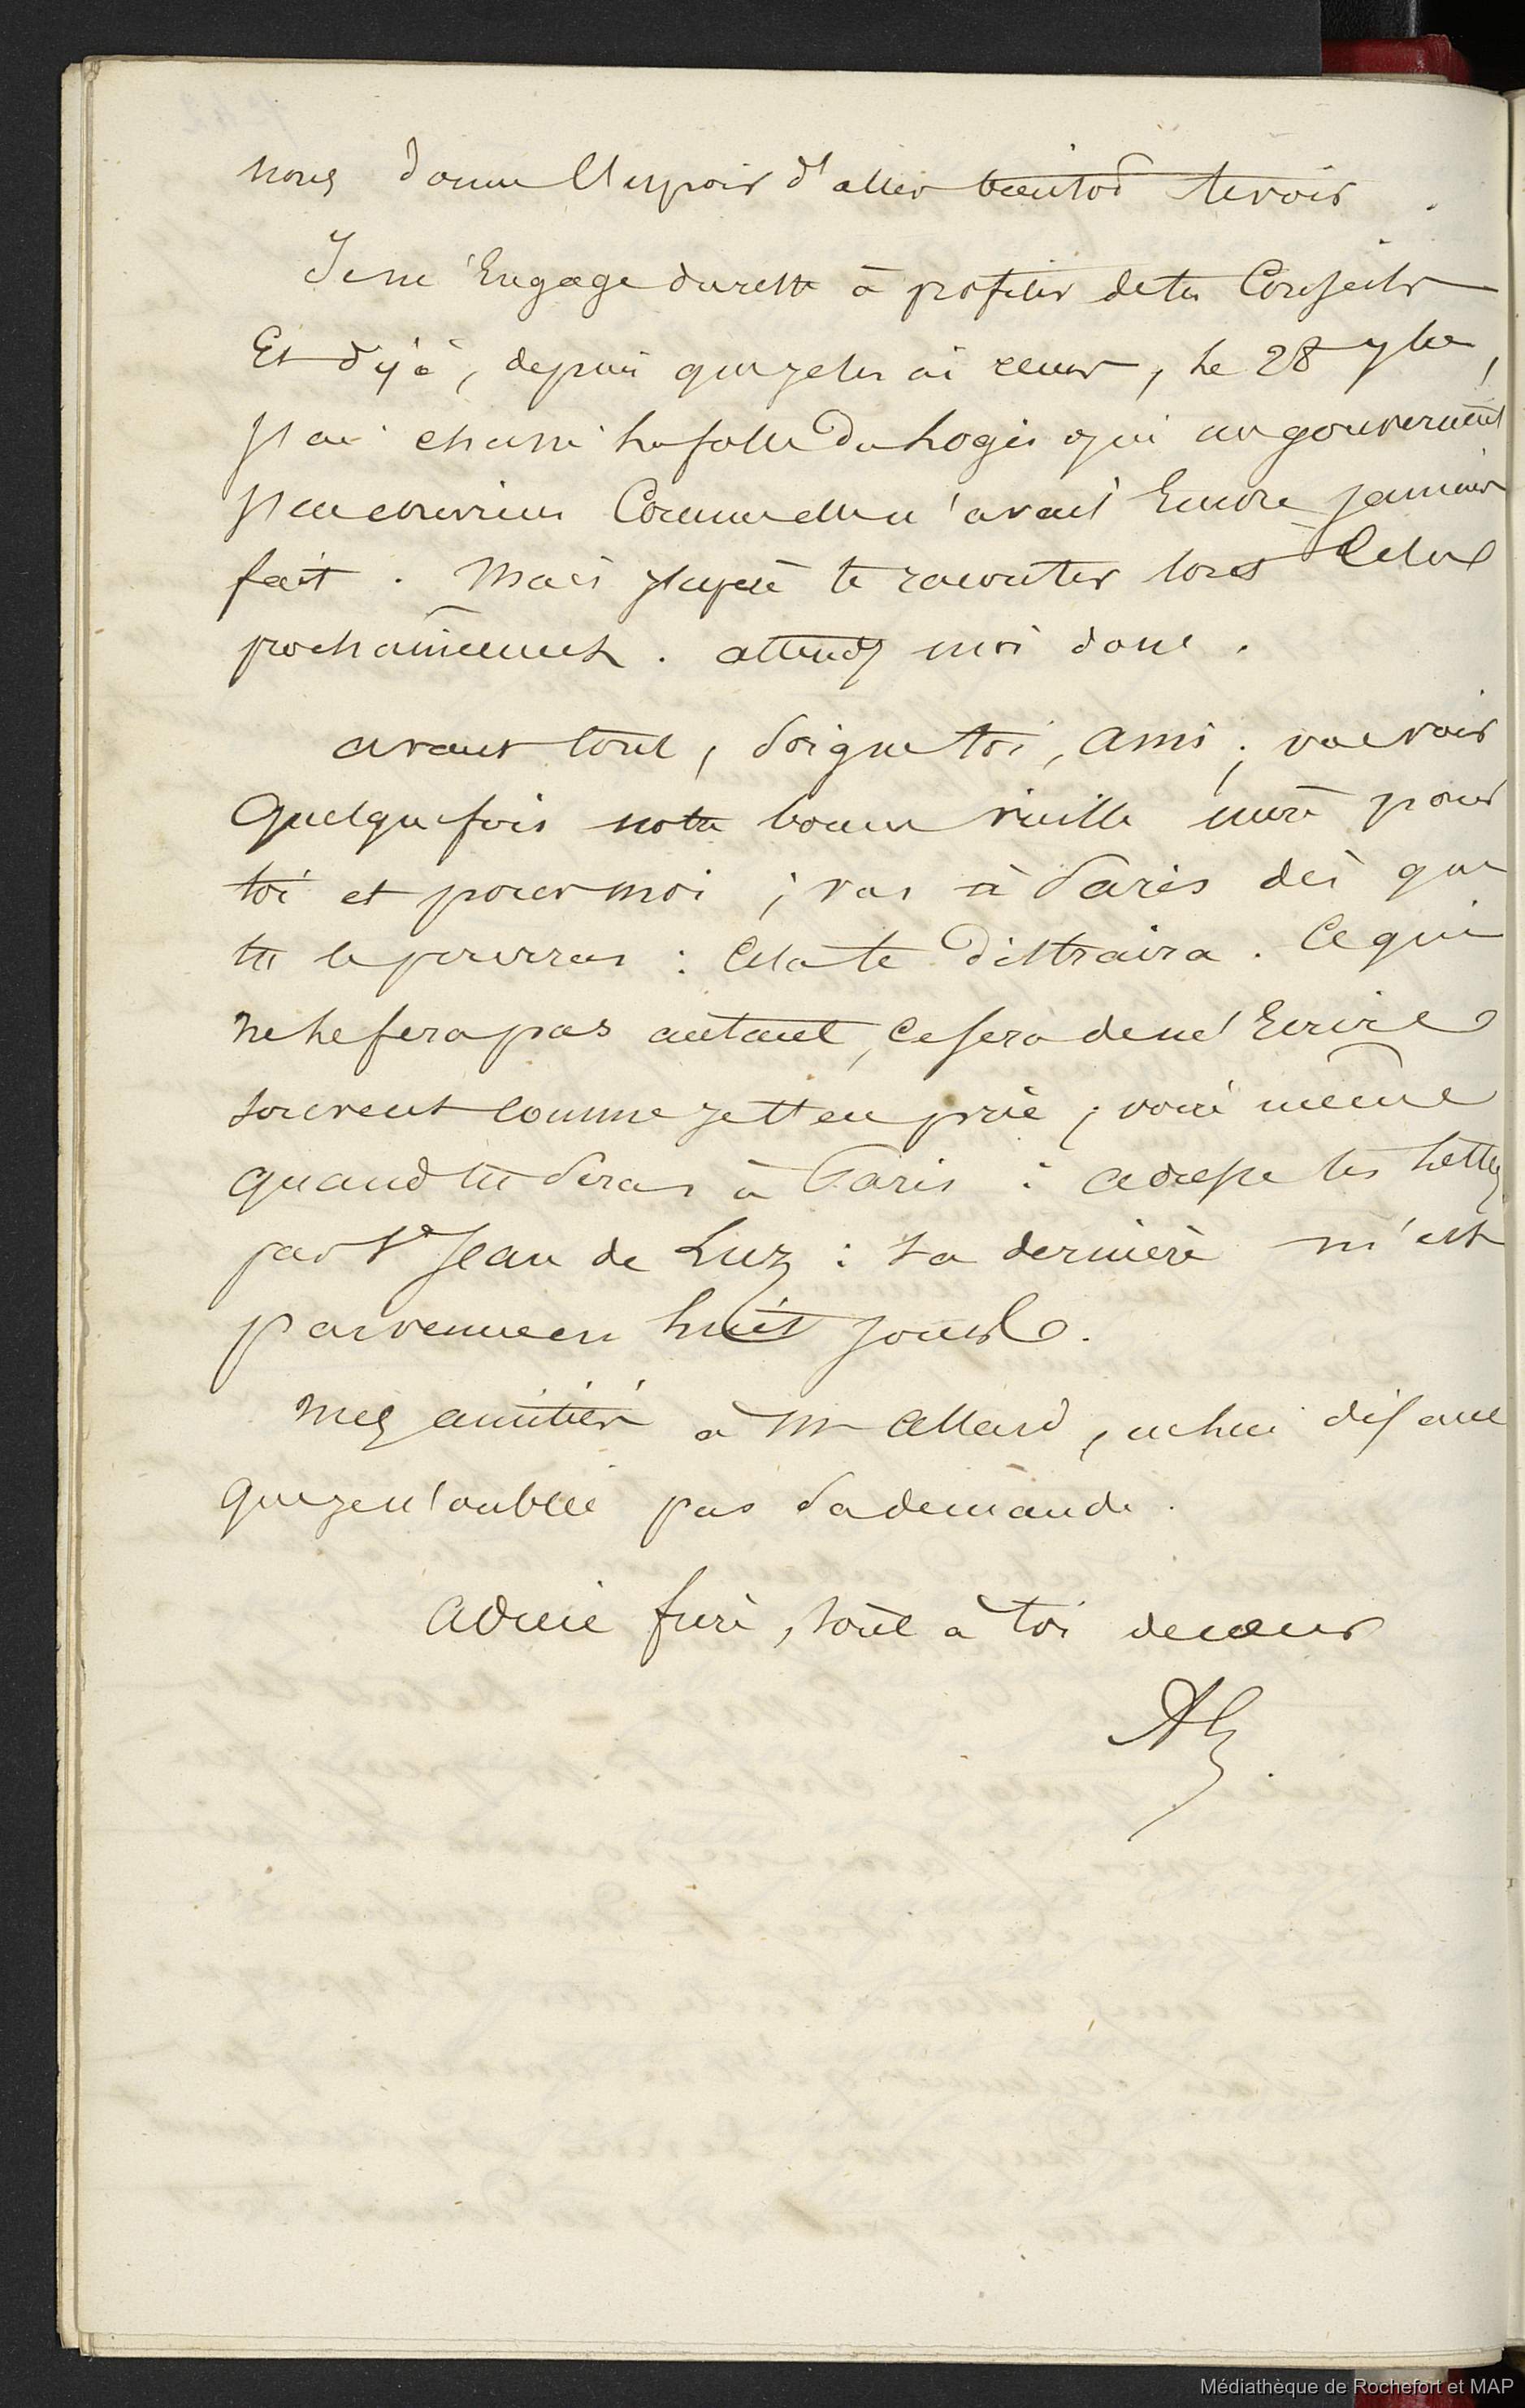 nous donne l'espoir d'aller bientot te voir.
Je m'Engage du reste à profiter de tes Conseils
Et déjà, depuis que je les ai reçus, le 28 7bre,
j'ai chassé la folle du Logis qui me gouvernait
Comme elle n'avait Encore jamais
fait. Mais j'espère te raconter tout Cela
prochainement. attends moi donc.
avant tout, Soigne toi, ami; va voir
Quelque fois notre bonne vieille mère pour
toi et pour moi; vas à Paris dès que
tu le pourras: Cela te distraira. Ce qui
ne le fera pas autant, Ce sera de m'Ecrire
souvent comme je t'en prie, voire même
quand tu seras à Paris: adresse tes lettres
par St Jean de Luz: ta dernière m'est
parvenue en huit jours.
Mes amitiés à Mr Allard, en lui disant
que je n'oublie pas sa demande.
Adieu frère, tout à toi de cœur